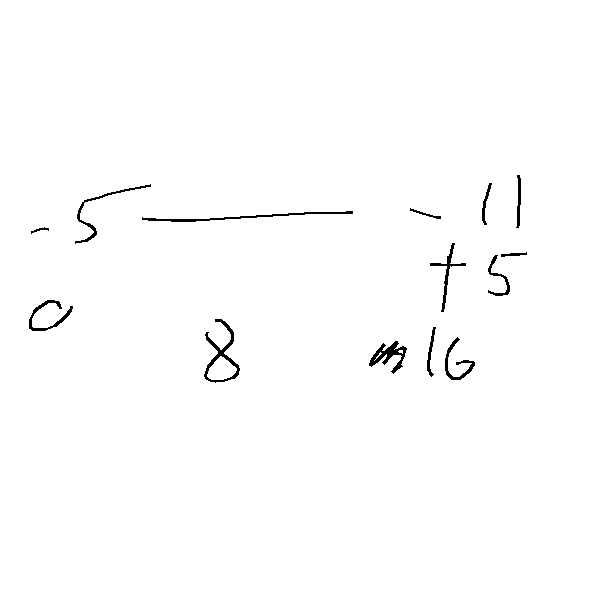 -5 — - 11
+ 5
0 8 16